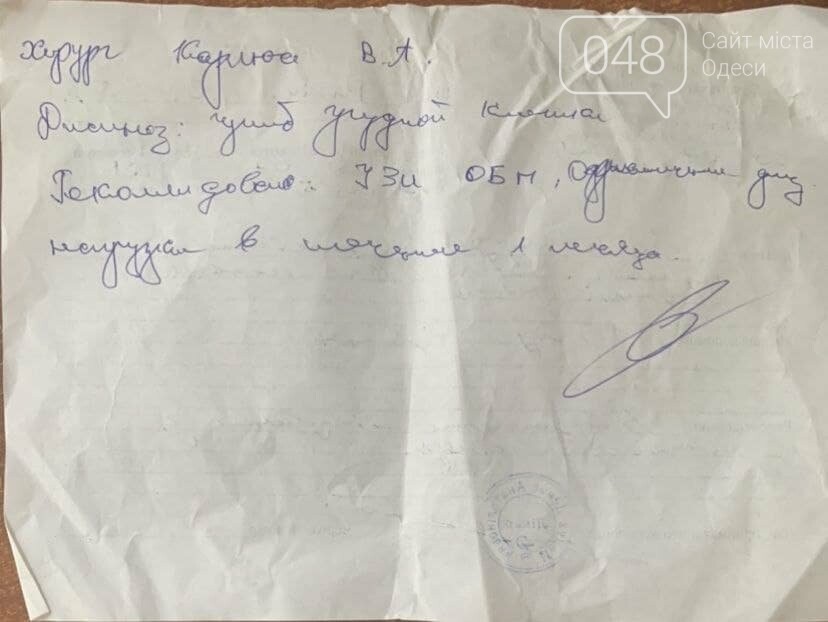 048 Сайт міста
Одеси
Хирург Карюса В.А.
Диагноз: ушиб грудной клетки
Рекомендовано: УЗИ ОБП, Ограничение физ.
нагрузки в течение 1 месяца.